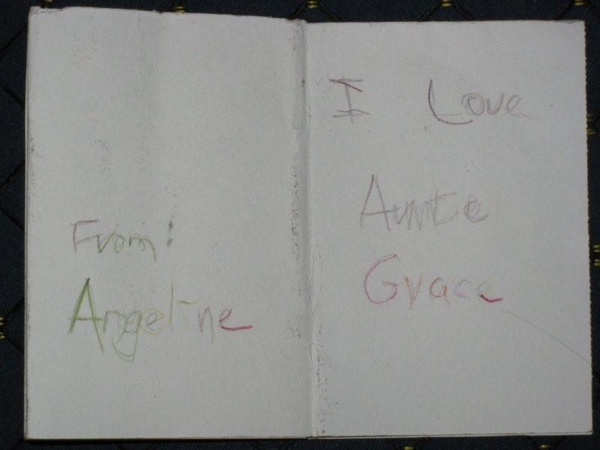 From:
Angeline
I Love
Auntie
Grace